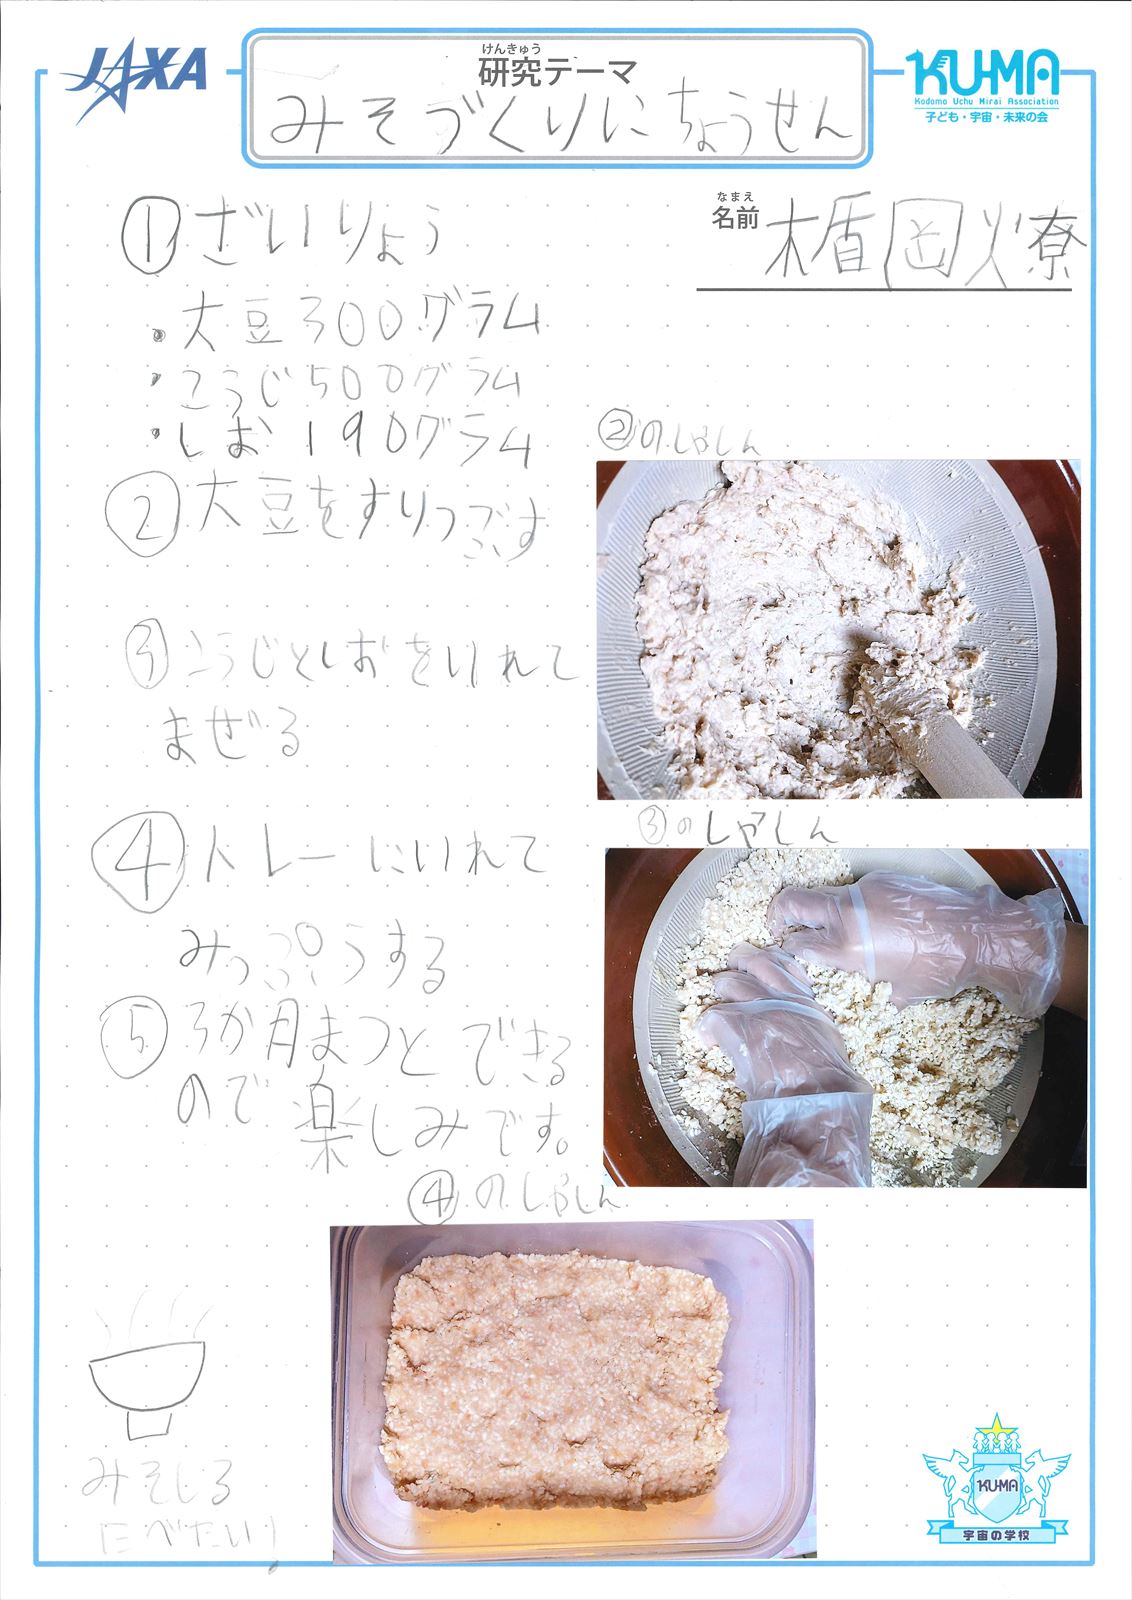 JAXA
けんきゅう
研究テーマ
みそづくりにちょうせん
KU-MA
Kodomo Uchu Mirai Association
子ども・宇宙・未来の会
なまえ
名前 楯岡燎
①ざいりょう
・大豆300グラム
・こうじ500グラム
・しお190グラム
②大豆をすりつごす
②のしゃしん
③こうじとしおをいれて
まぜる
③のしゃしん
④トレーにいれて
みっぷうする
⑤3か月まつとできる
ので楽しみです。
④のしゃしん
みそしる
たべたい!
KUMA
宇宙の学校